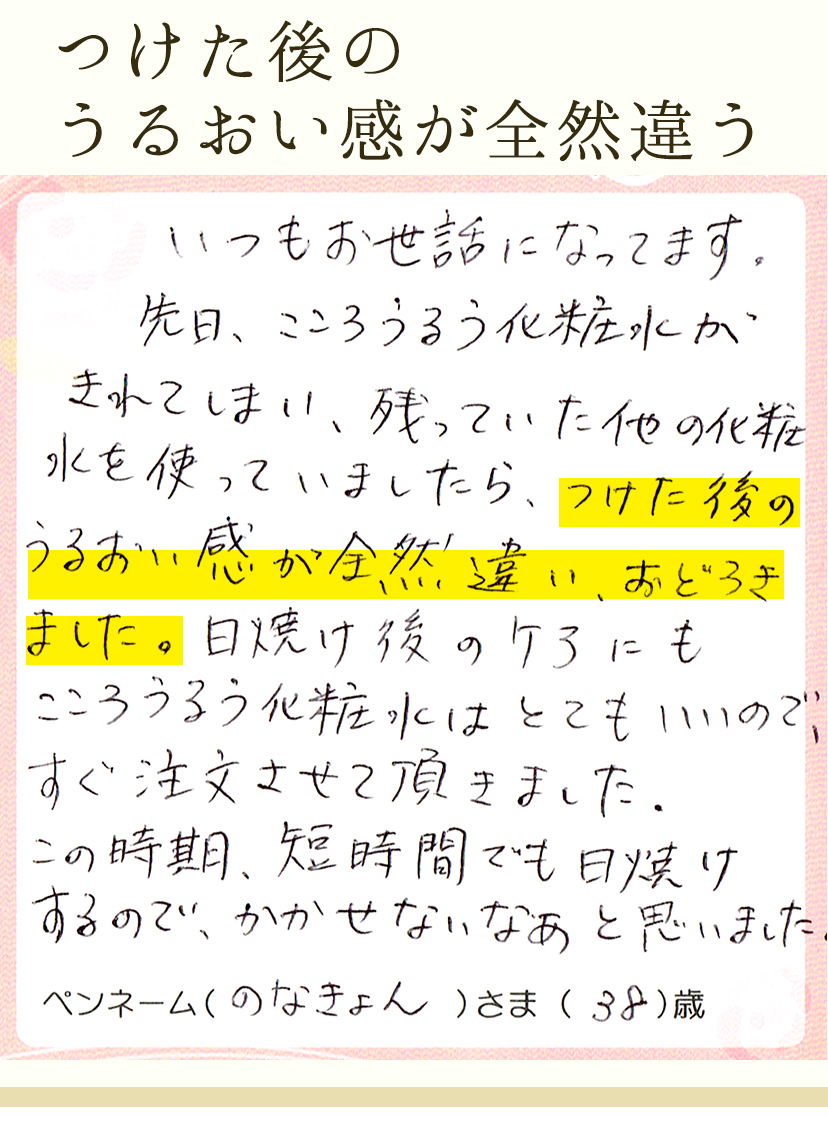 つけた後の
うるおい感が全然違う
いつもお世話になってます。
先日、こころうるう化粧水が
きれてしまい、残っていた他の化粧
水を使っていましたら、つけた後の
うるおい感が全然違い、おどろき
ました。日焼け後のケアにも
こころうるう化粧水はとてもいいので、
すぐ注文させて頂きました。
この時期、短時間でも日焼け
するので、かかせないなあと思いました。
ペンネーム(のなきょん)さま(38)歳